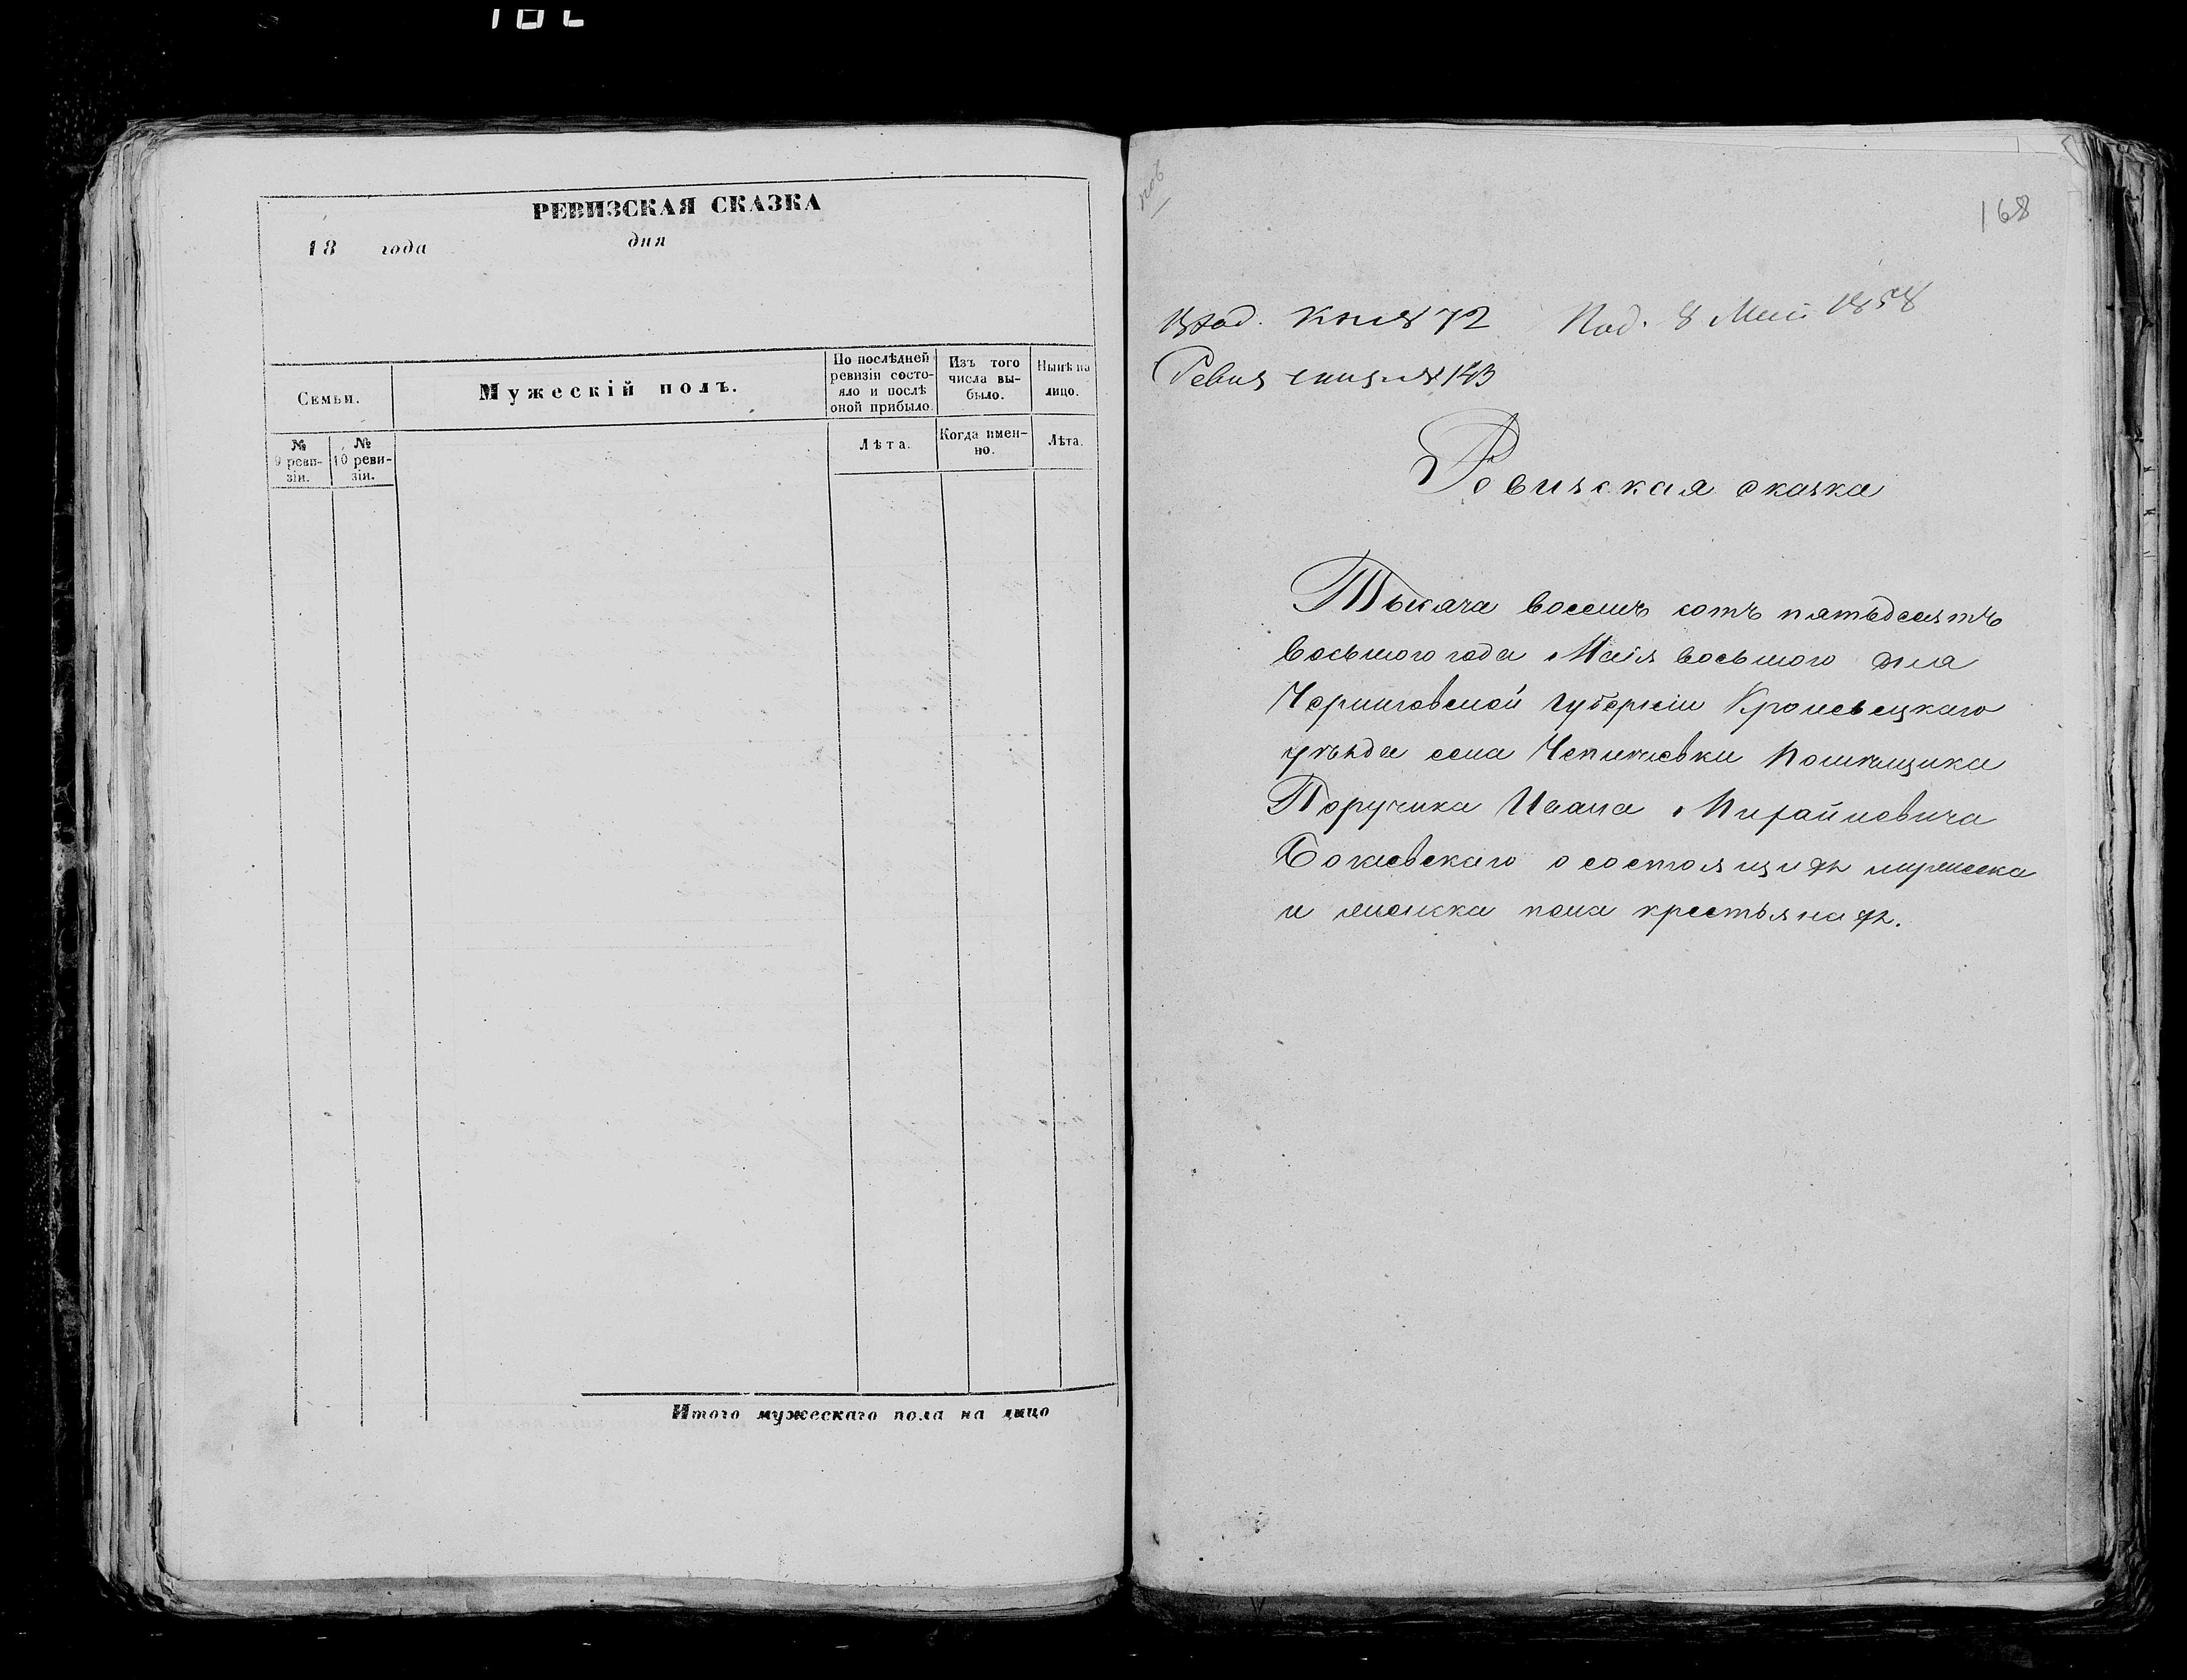 РЕВИЗСКАЯ СКАЗКА
18 года дня
Семьи.
Мужескій полъ.
По послѣдней ревизіи состо-
яло и послѣ
оной прибыло.
Изъ того
числа вы-
было.
Нынѣ на
лицо.
№
9 реви-
зіи.
№
10 реви-
зіи.
Лѣта.
Когда имен-
но.
Лѣта.
Итого мужескаго пола на лицо
168
Вход. Кни № 72 Под. 8 Маія 1858
Ревиз № 143
Ревизская сказка
Тысяча восемь сотъ пятьдесятъ
восьмого года Маія восьмого дня
Черниговской губерніи Кролевецкаго
уѣзда села Чепліевки помѣщика
Поручика Ивана Михайловича
Богаевскаго о состоящихъ мужеска
и женска пола крестьянахъ.